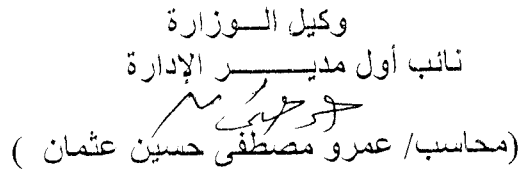 وكيل الـــوزارة
نائب أول مديـــــــر الإدارة
(محاسب/ عمرو مصطفى حسين عثمان )